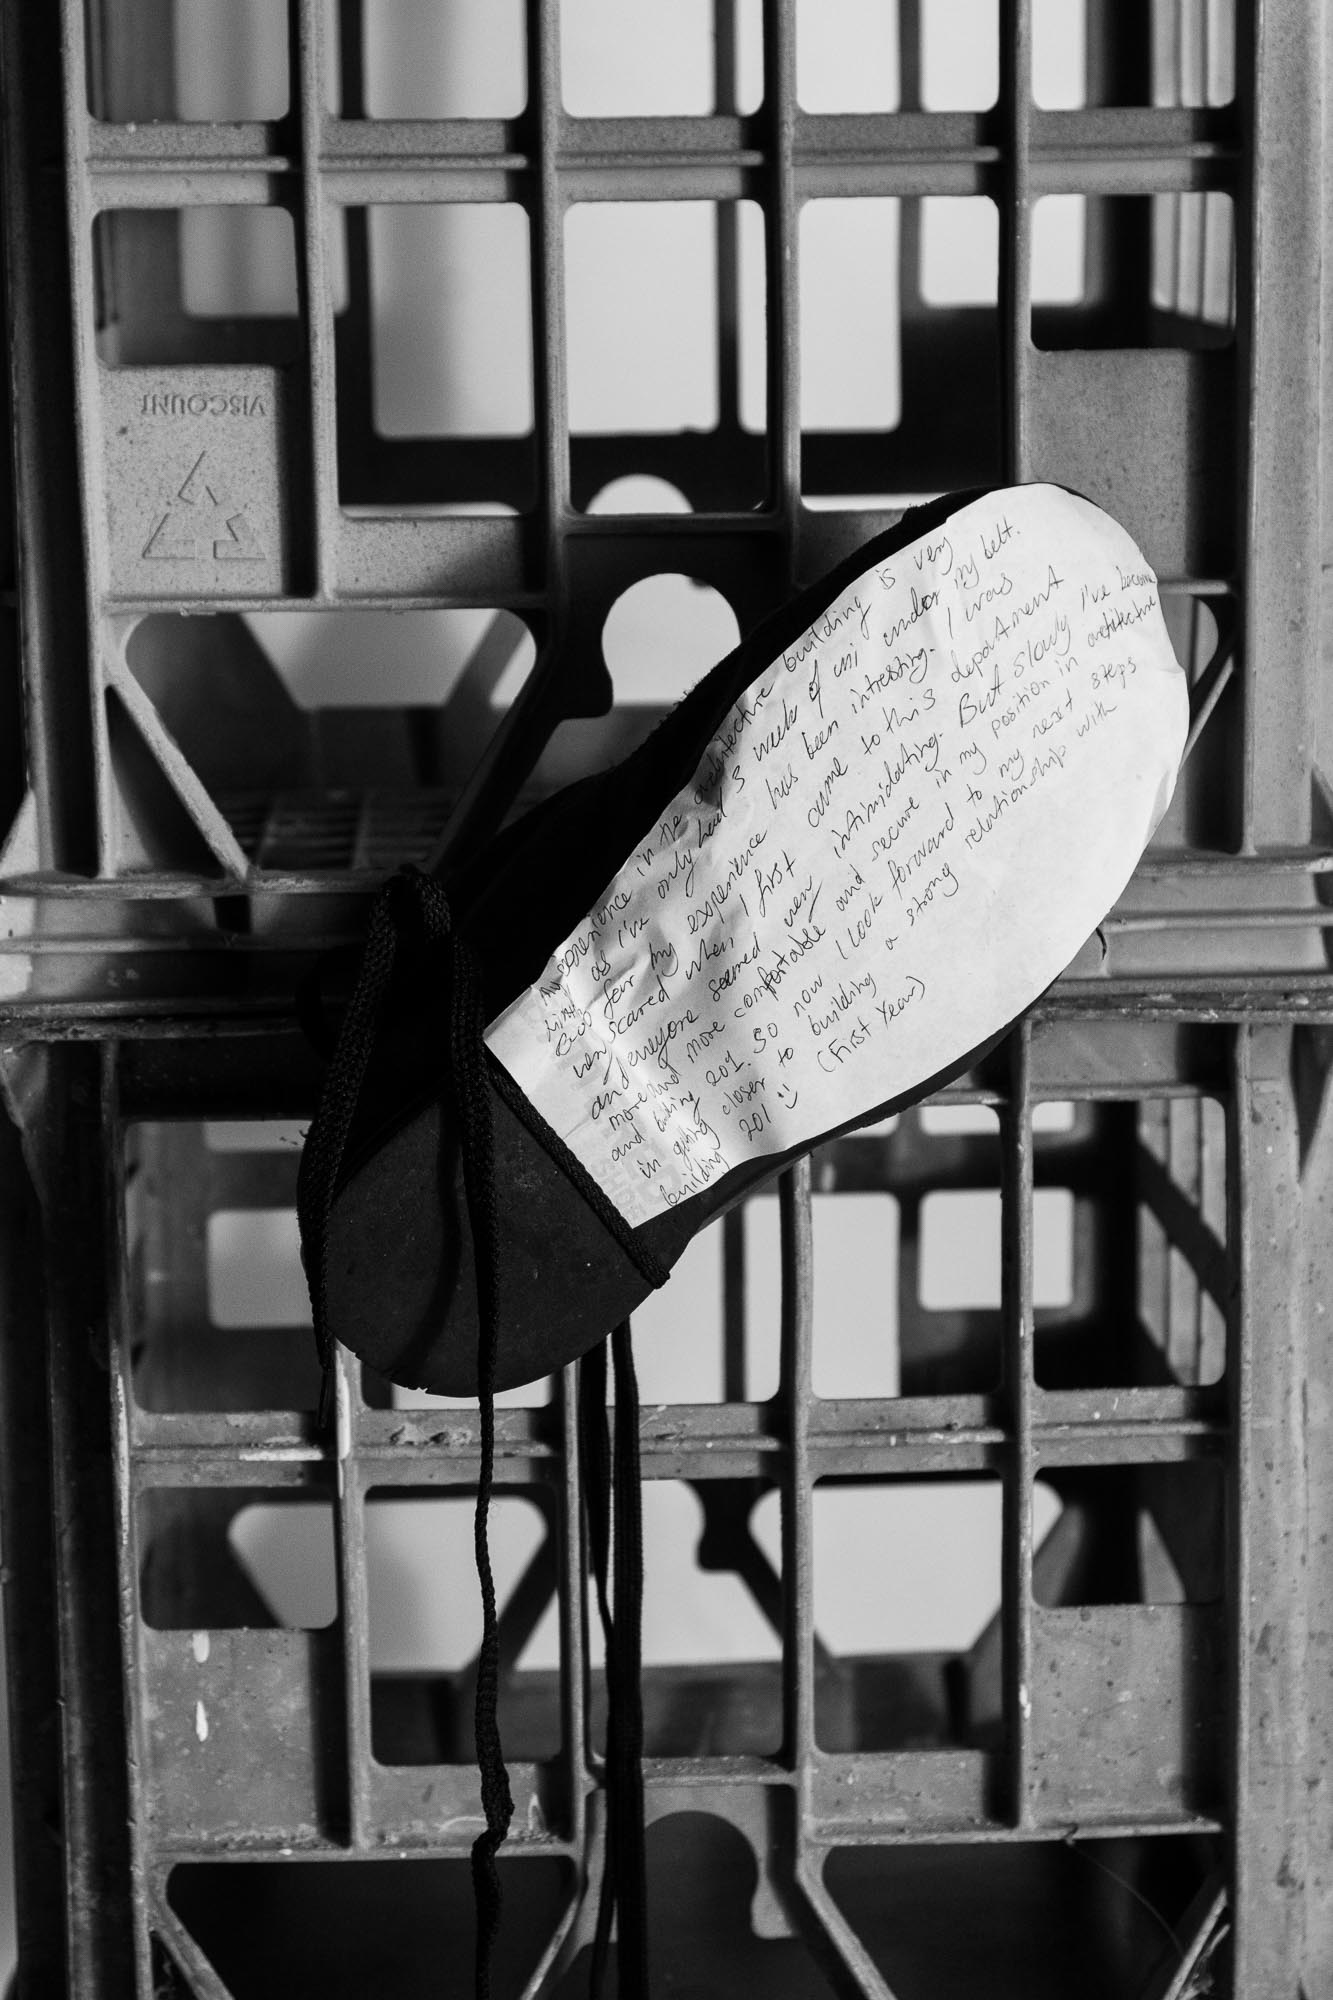 VISCOUNT
My experience in the architecture building is very
limited as I've only had 3 week of uni under my belt.
so far my experience has been intresting. I was
very scared when I first came to this department
and everyone seemed very intimidating. But slowly I've become
more and more comfortable and secure in my position in architecture
and building 201. So now I look forward to my next steps
in getting closer to building a strong relationship with
building 201 :) (First Year)